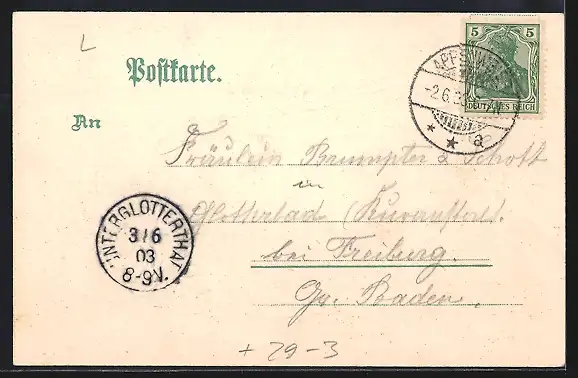 L
Postkarte.
5 5
DEUTSCHES REICH
APPENWEIER
-2.6.03
* * a
An
Fräulein Brumpter & Schott
in
Glotterbad (Kuranstalt.
bei Freiburg.
Gr. Baden.
UNTERGLOTTERTHAL
3/6
03
8-9V.
+ 29-3